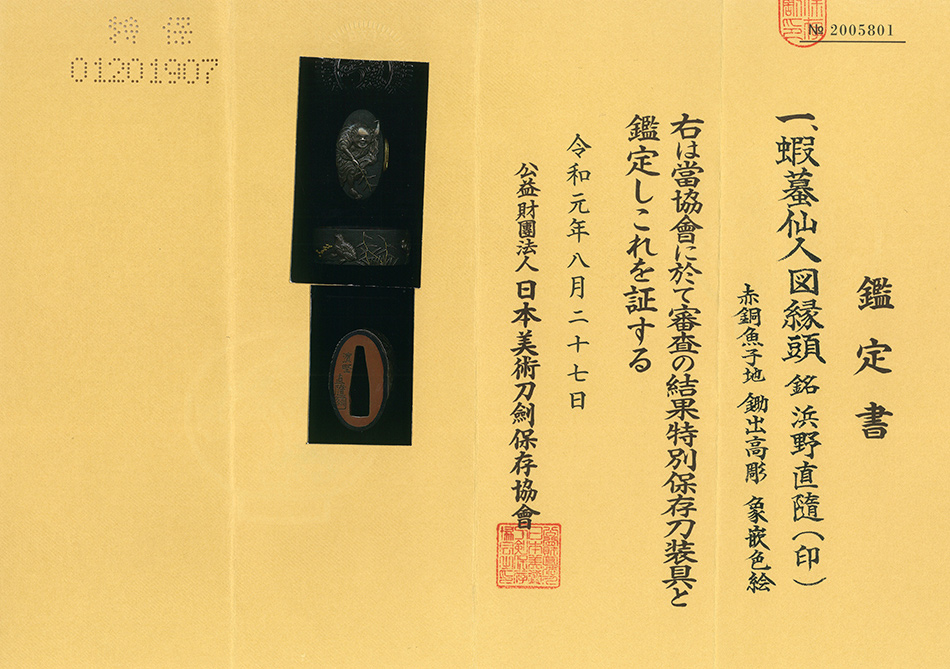 № 2005801
鑑定書
一、蝦蟇仙人図縁頭 銘 浜野直隨(印)
赤銅魚子地 鋤出高彫 象嵌色絵
右は當協會に於て審査の結果特別保存刀装具と
鑑定しこれを証する
令和元年八月二十七日
公益財團法人 日本美術刀劍保存協會
特保
01201907